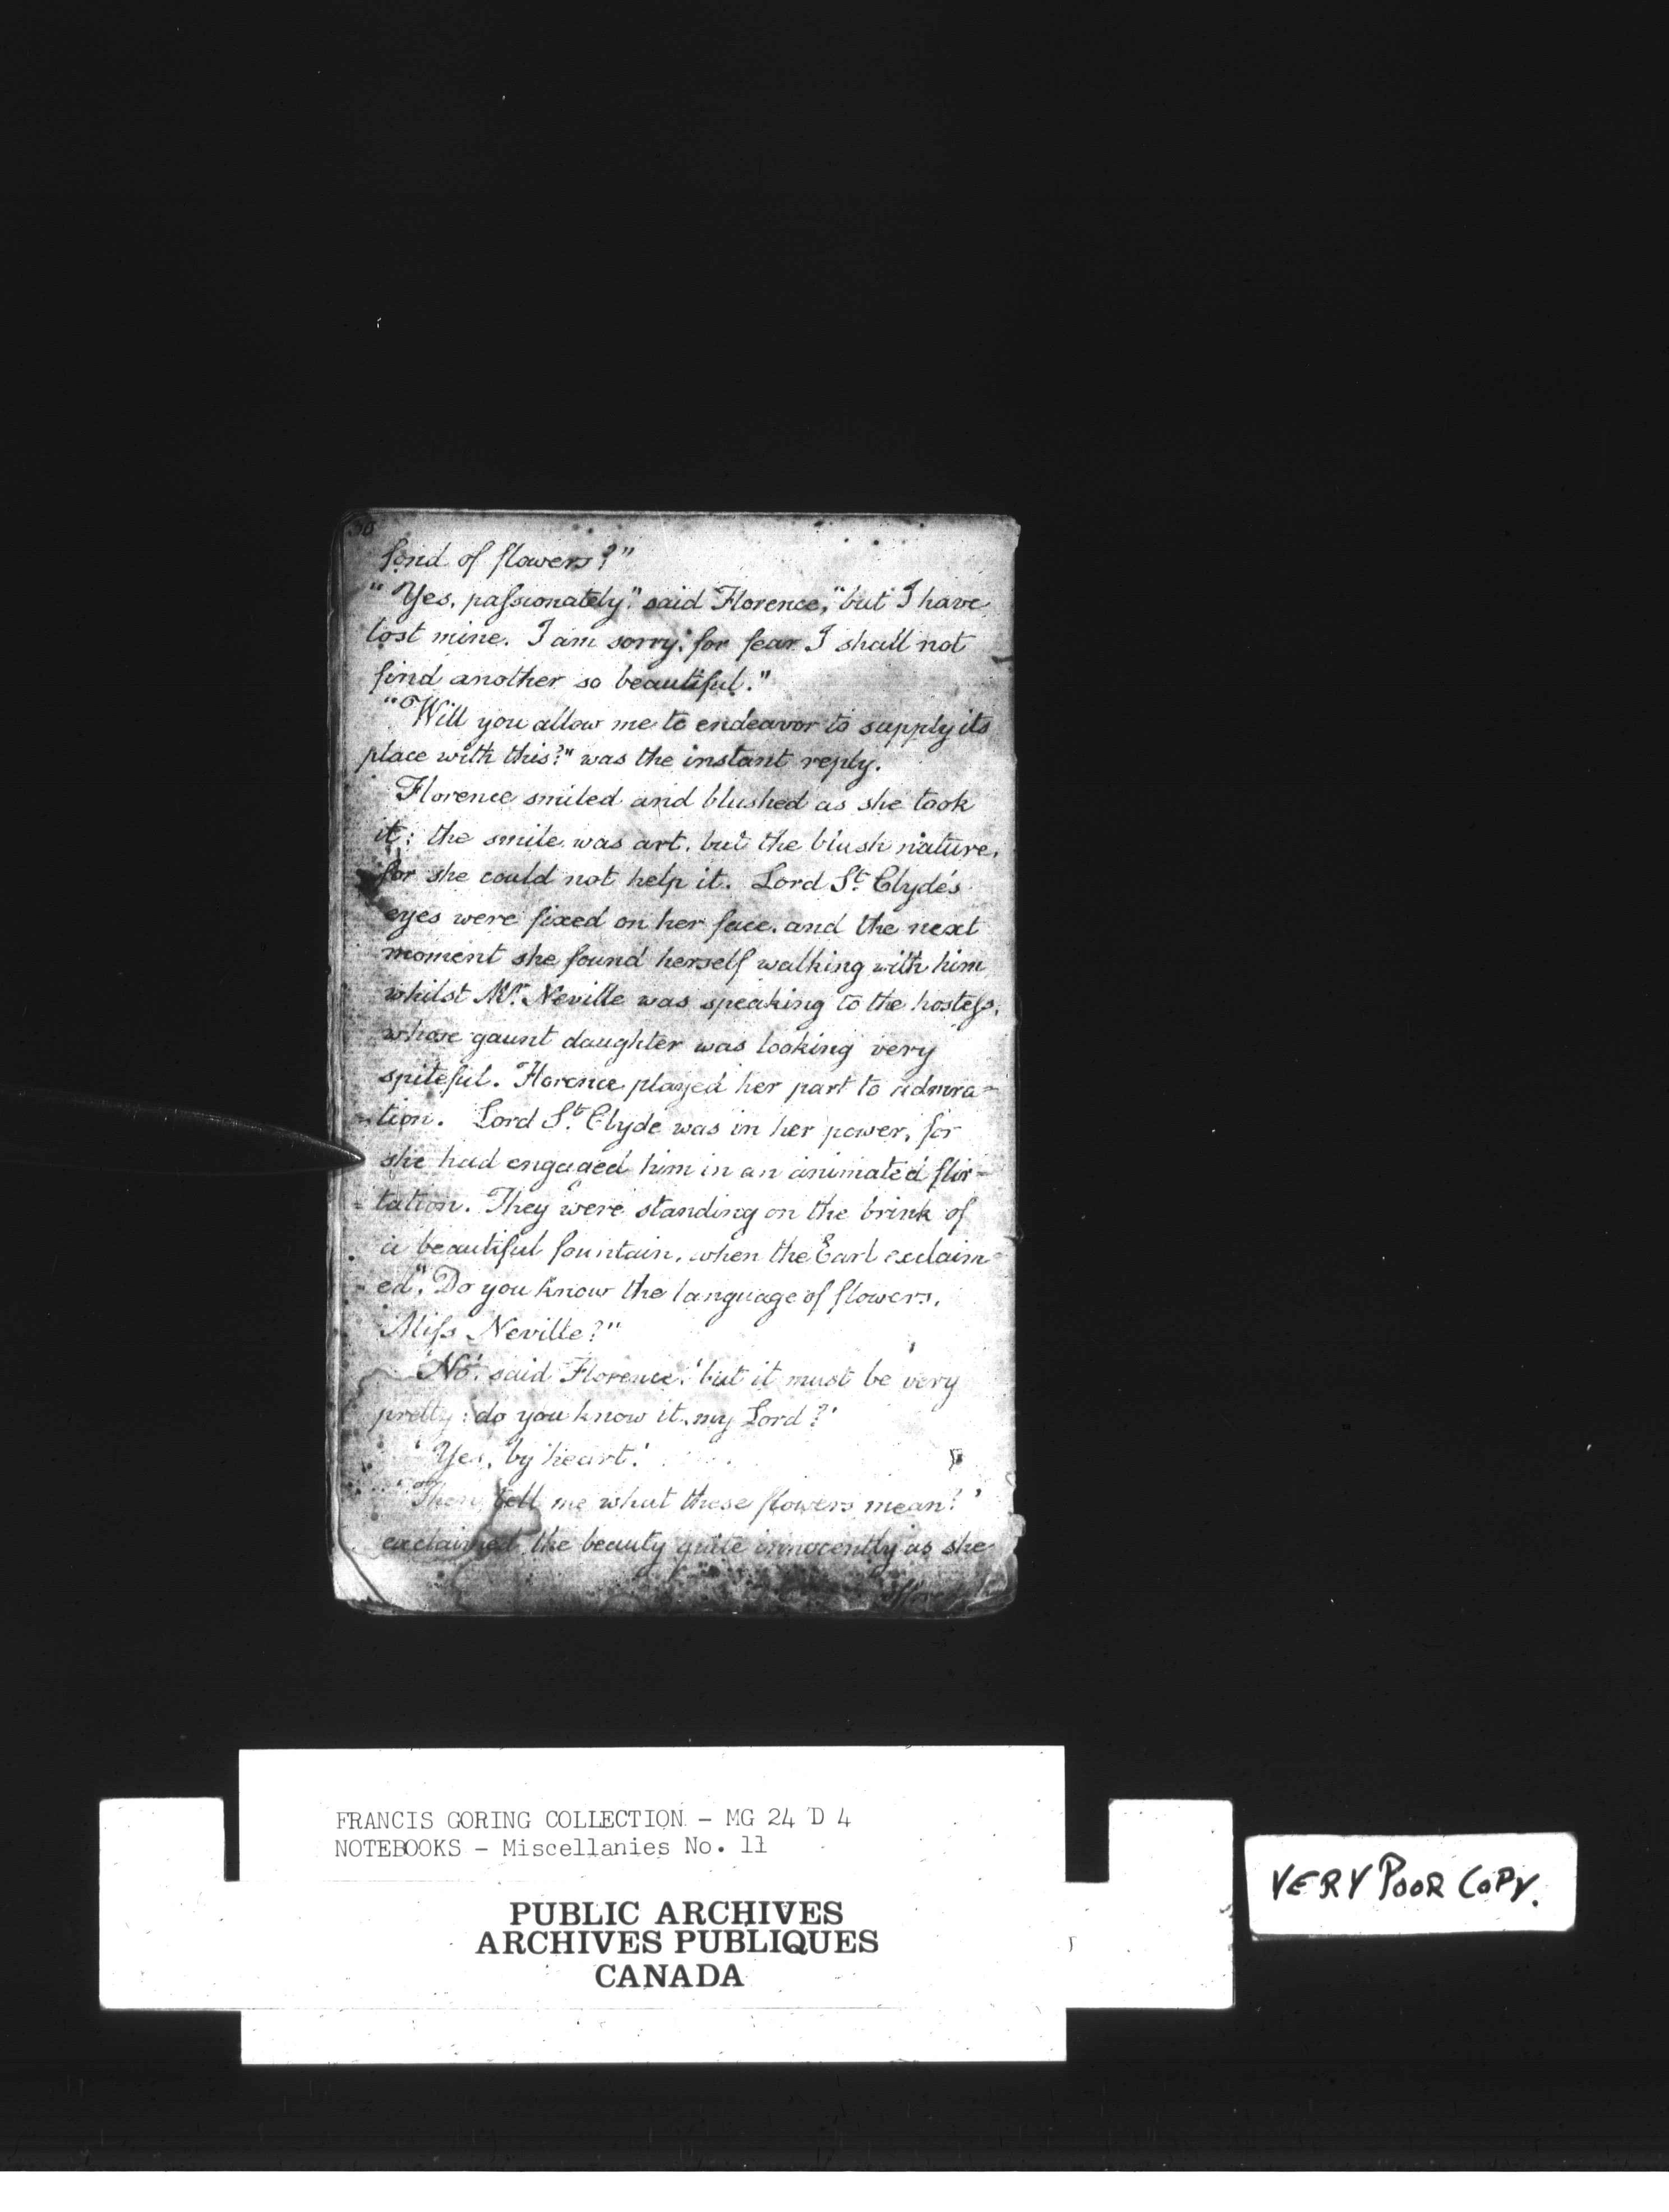 38
fond of flowers?"
"Yes, passionately," said Florence, "but I have
lost mine. I am sorry, for fear I shall not
find another so beautiful."
"Will you allow me to endeavor to supply its
place with this?" was the instant reply.
Florence smiled and blushed as she took
it; the smile was art, but the blush nature,
for she could not help it. Lord St. Clyde's
eyes were fixed on her face, and the next
moment she found herself walking with him
whilst Mr. Neville was speaking to the hostess,
whose gaunt daughter was looking very
spiteful. Florence played her part to admira-
-tion. Lord St. Clyde was in her power, for
she had engaged him in an animated flir-
-tation. They were standing on the brink of
a beautiful fountain, when the Earl exclaim-
-ed, "Do you know the language of flowers,
Miss Neville?"
'No,' said Florence, 'but it must be very
pretty; do you know it, my Lord?'
'Yes, by heart.'
'Then tell me what these flowers mean?'
exclaimed the beauty quite innocently as she
FRANCIS GORING COLLECTION - MG 24 D 4
NOTEBOOKS - Miscellanies No. 11
PUBLIC ARCHIVES
ARCHIVES PUBLIQUES
CANADA
VERY POOR COPY.